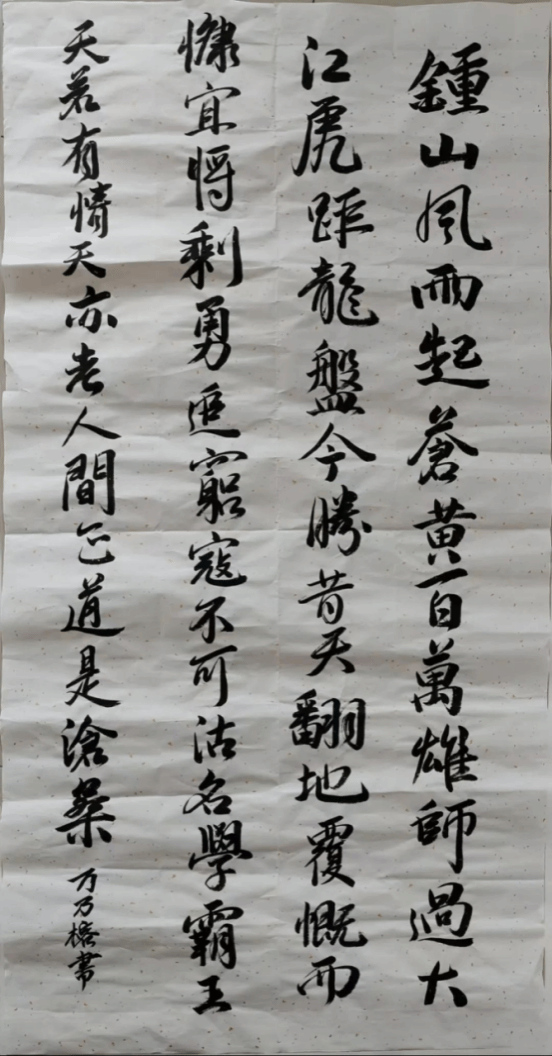 鍾山風雨起蒼黃百萬雄師過大
江虎踞龍盤今勝昔天翻地覆慨而
慷宜將剩勇追窮寇不可沽名學霸王
天若有情天亦老人間正道是滄桑
万乃書